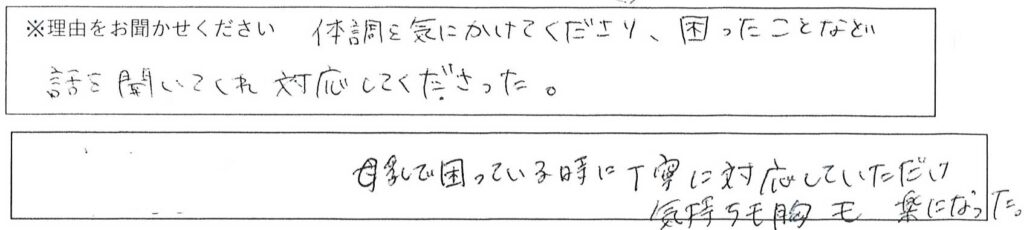 ※理由をお聞かせください 体調を気にかけてくださり、困ったことなど
話を聞いてくれ対応してくださった。
母乳で困っている時に丁寧に対応していただけ
気持ちも胸も楽になった。